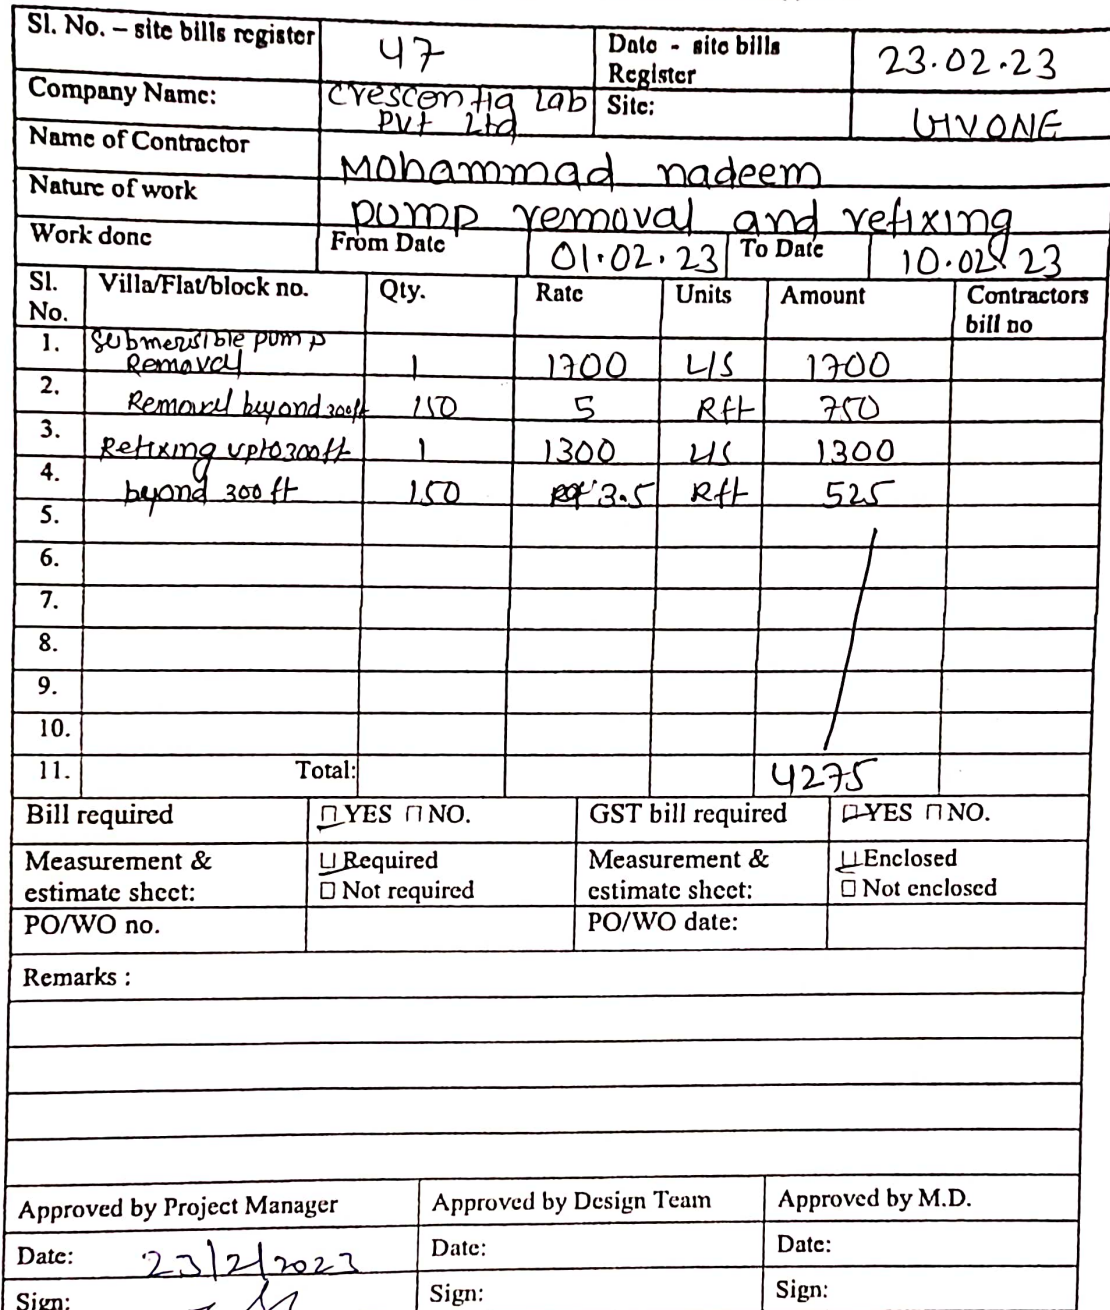 Sl. No. – site bills register 47 Date - site bills Register 23.02.23
Company Name: Crescentia Lab Pvt Ltd Site: GIVONE
Name of Contractor Mohammad nadeem
Nature of work pump removal and refixing
Work done From Date 01.02.23 To Date 10.02.23
Sl. No. Villa/Flat/block no. Qty. Rate Units Amount Contractors bill no
1. Submersible pump Removal 1 1700 L/S 1700
2. Removal beyond 300ft 150 5 Rft 750
3. Refixing upto 300ft 1 1300 L/S 1300
4. beyond 300 ft 150 3.5 Rft 525
5.
6.
7.
8.
9.
10.
11. Total: 4275
Bill required □ YES □ NO. GST bill required □ YES □ NO.
Measurement & estimate sheet: □ Required □ Not required Measurement & estimate sheet: □ Enclosed □ Not enclosed
PO/WO no. PO/WO date:
Remarks :
Approved by Project Manager Approved by Design Team Approved by M.D.
Date: 23/2/2023 Date: Date:
Sign: Sign: Sign: